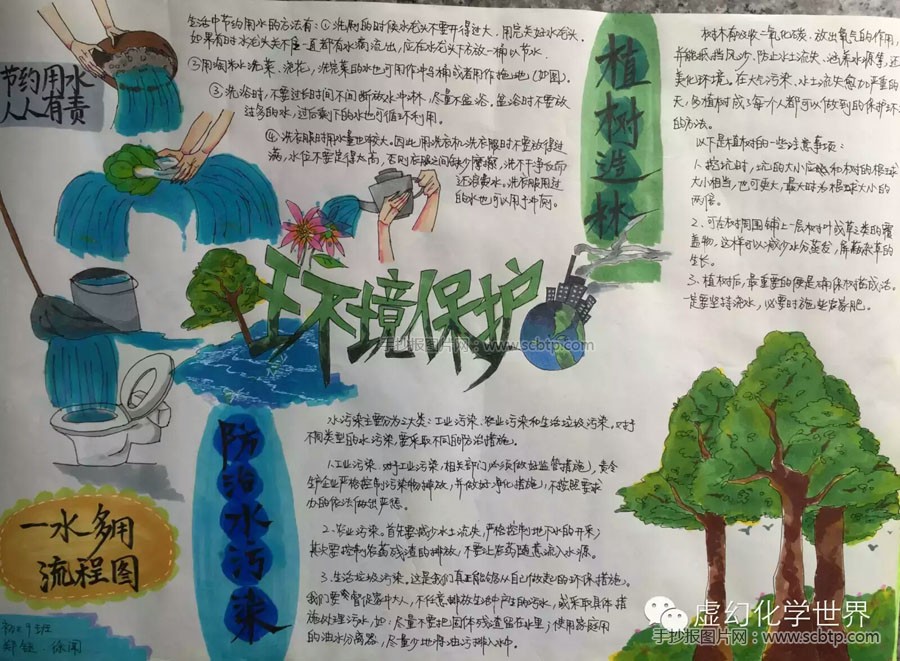 节约用水
人人有责
生活中节约用水的方法有：①洗刷的时候水龙头不要开得过大，用完关好水龙头。
如果有时水龙头关不严一直都有水滴流出，应在水龙头下方放一桶以节水。
②用淘米水洗菜、浇花，洗完菜的水也可用作冲马桶或者用作拖地（如图）。
③洗浴时，不要过长时间不间断放水冲淋，尽量不盆浴，盆浴时不要放
过多的水，过后剩下的水也可循环利用。
④洗衣服时用水量也特大。因此，用洗衣机洗衣服时不要放得过
满，水位不要定得太高，否则衣服之间缺少摩擦，洗不干净反而
还浪费水。洗衣服用过
的水也可以用于冲厕。
植树造林
树木有吸收二氧化碳，放出氧气的作用，
并能抵挡风沙，防止水土流失，涵养水源等，还
美化环境。在大气污染、水土流失愈加严重的
天，多植树成了每个人都可以做到的保护环
的方法。
以下是植树后的一些注意事项：
1、挖坑时，坑的大小应和树的根球
大小相当，也可更大，最大时为根球大小的
两倍。
2、可在树周围铺上一层树叶或草之类的覆
盖物，这样可以减少水分蒸发，屏蔽杂草的
生长。
3、植树后，最重要的便是确保树苗成活。
一定要坚持浇水，必要时施些农家肥。
环境保护
手抄报图片网：www.scbtp.com
防治水污染
水污染主要分为三大类：工业污染、农业污染和生活垃圾污染。对于
不同类型的水污染，要采取不同的防治措施。
1、工业污染。对于工业污染，相关部门必须做好监管措施，责令
企业严格控制污染物排放，并做好净化措施，不按照要求
办的依法做出严惩。
2、农业污染。首先要减少水土流失，严格控制地下水的开采；
其次要控制农药残渣的排放，不要让农药随意流入水源。
3、生活垃圾污染，这是我们真正能够从自己做起的环保措施。
我们要督促家中大人，不任意排放生活中产生的污水，或采取具体措
施处理污水，如：尽量不要把固体残渣留在水里；使用家庭用
的油水分离器，尽量少地将油污排入水中。
一水多用
流程图
初二9班
虚幻化学世界
手抄报图片网：www.scbtp.com